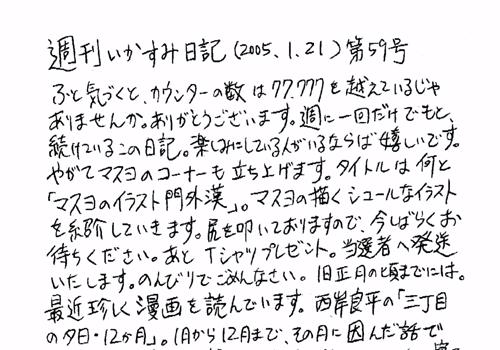 週刊いかすみ日記(2005.1.21)第59号
ふと気づくと、カウンターの数は77,777を越えているじゃ
ありませんか。ありがとうございます。週に一回だけでもと、
続けているこの日記。楽しみにしている人がいるならば嬉しいです。
やがてマスヨのコーナーも立ち上げます。タイトルは何と
「マスヨのイラスト門外漢」。マスヨの描くシュールなイラスト
を紹介していきます。尻を叩いておりますので、今しばらくお
待ちください。あとTシャツプレゼント。当選者へ発送
いたします。のんびりでごめんなさい。旧正月の頃までには。
最近珍しく漫画を読んでいます。西岸良平の「三丁目
の夕日・12か月」。1月から12月まで、その月に因んだ話で